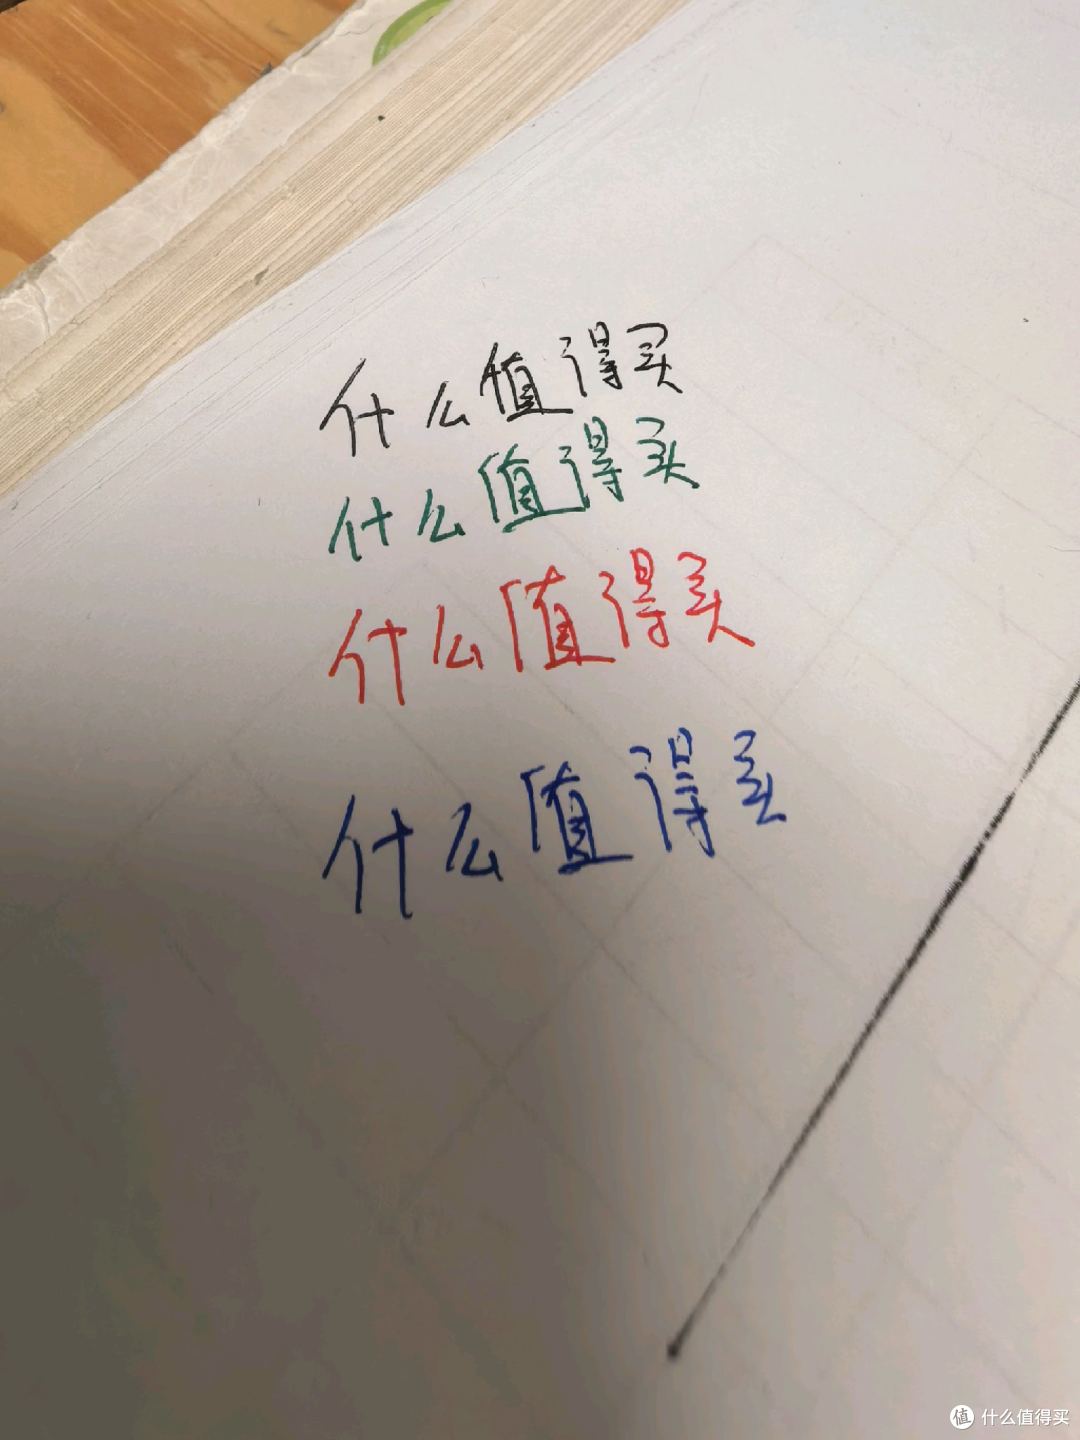 什么值得买
什么值得买
什么值得买
什么值得买
值 什么值得买